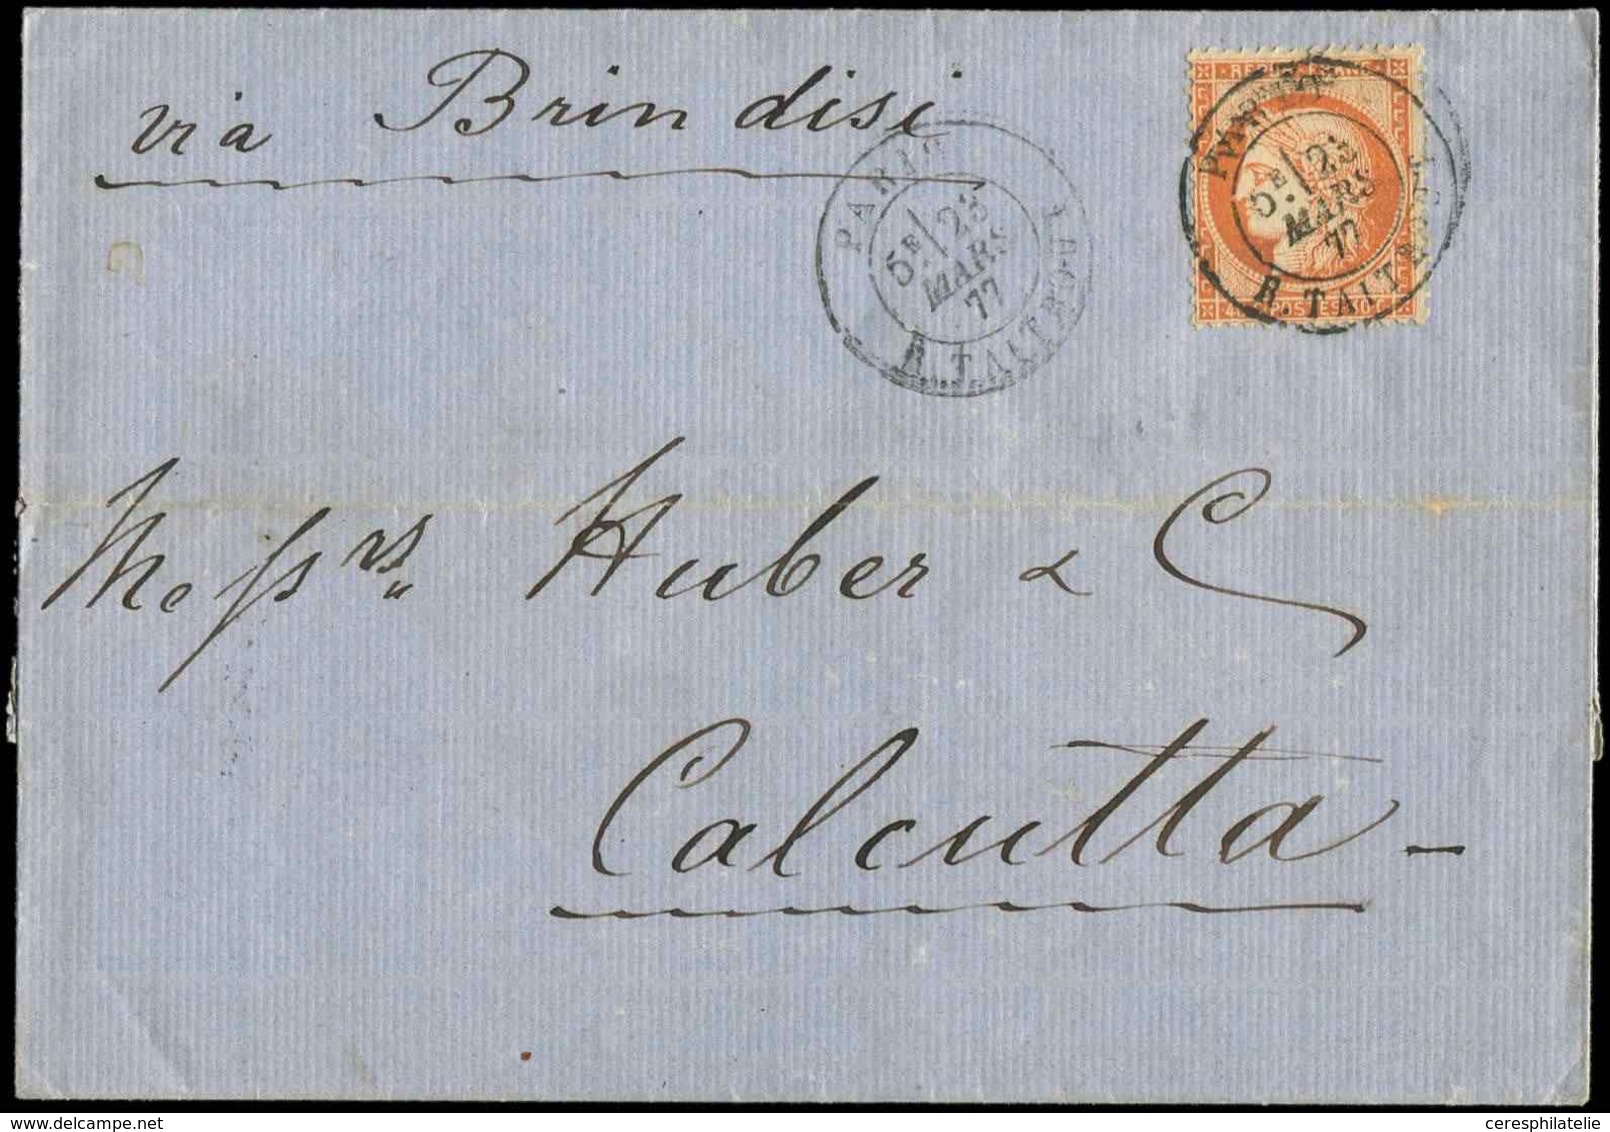 via Brindisi
REPUB. FRANC.
PARIS
5E 23
MARS
77
R. TAITBOUT
PARIS
5E 23
MARS
77
R. TAITBOUT
POSTES
Messrs Huber & C
Calcutta -
delcampe.net
ceresphilatelie